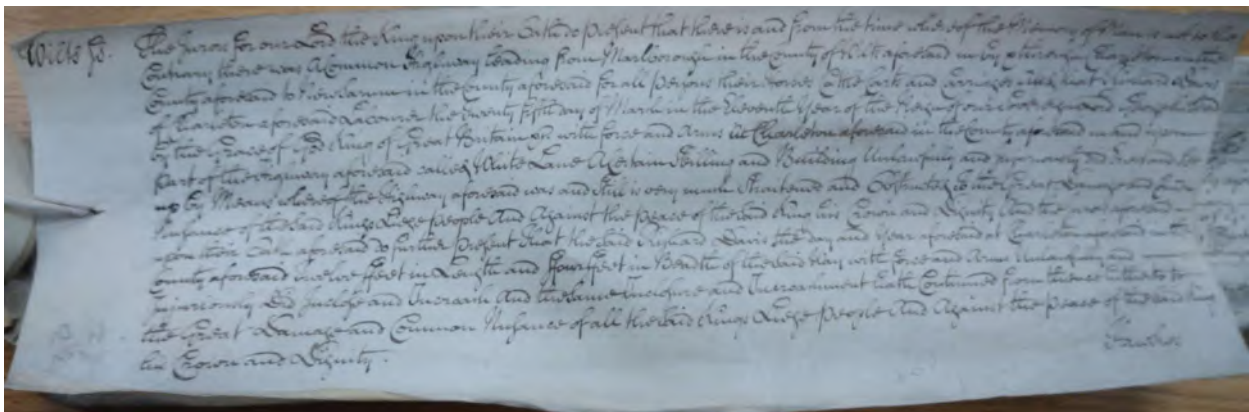 Wilts ss. The Jurors for our Lord the King upon their Oath do present that there is and from the time whereof the Memory of Man is not to the
Contrary there was a Common Highway leading from Marlborough in the County of Wilts aforesaid in by through Charleton in the
County aforesaid to New Sarum in the County aforesaid for all persons their horses Cattle Carts and Carriages that Richard Davis
of Charleton aforesaid the twenty fifth day of March in the Eleventh Year of the Reign of our
by the Grace of God King of Great Britain &c with force and Arms at Charleton aforesaid in the County aforesaid in and upon
part of the Highway aforesaid called Lane a Certain and Building Unlawfully and injuriously did
up by Means whereof the Highway aforesaid was and still is very much Straitened and Obstructed to the Great Damage and
Nusance of the said Kings Liege people And Against the peace of the said King his Crown and Dignity And the
upon their Oath aforesaid do further Present That the said Richard Davis the day and Year aforesaid at Charleton aforesaid in the
County aforesaid Twelve ffeet in Length and ffour ffeet in Breadth of the said Way with force and Arms Unlawfully and
Injuriously did Inclose and and the same Inclosure and hath Continued from thence hitherto to
the Great Damage and Common Nusance of all the said Kings Liege People And Against the peace of the said King
his Crown and Dignity.